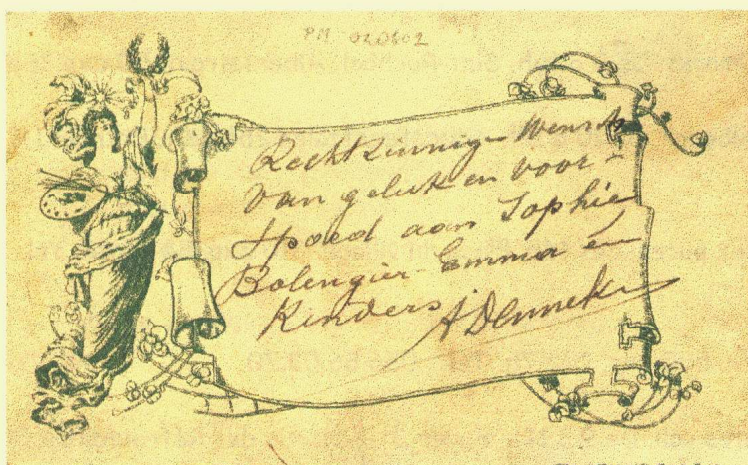 PM 020602
Rechtzinnige Wensch
van geluk en voor-
spoed aan Sophie
Bolengier - Emma én
Kinders,